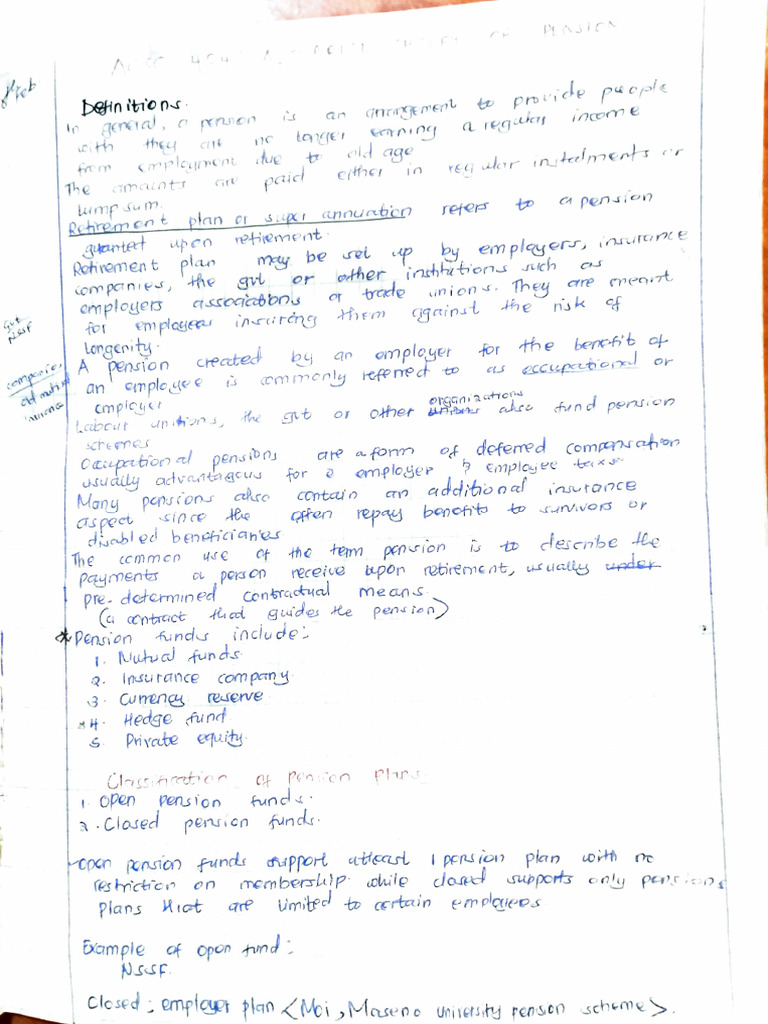 PENSION
Feb
Definitions.
In general, a pension is an arrangement to provide people
with they are no longer earning a regular income
from employment due to old age
The amounts are paid either in regular instalments or
lump sum.
Retirement plan or super annuation refers to a pension
granted upon retirement.
Retirement plan may be set up by employers, insurance
companies, the gvt or other institutions such as
employers associations or trade unions. They are meant
for employees insuring them against the risk of
longenity.
Gvt
NSSF
A pension created by an employer for the benefit of
companies
an employee is commonly referred to as occupational or
old mutual
employer
Labour unitions, the gvt or other organizations also fund pension
schemes
Occupational pensions are a form of deferred compensation
usually advantageous for a employer & employee taxs
Many pensions also contain an additional insurance
aspect since the often repay benefits to survivors or
disabled beneficiaries
The common use of the term pension is to describe the
payments a person receive upon retirement, usually under
pre-determined contractual means.
(a contract that guides the pension)
* Pension funds include:
1. Mutual funds
2. Insurance company
3. Currency reserve
*4. Hedge fund
5. Private equity.
Classification of pension plans
1. Open pension funds.
2. Closed pension funds.
-Open pension funds support atleast 1 pension plan with no
restriction on membership while closed supports only pensions
plans that are limited to certain employees
Example of open fund:
NSSF.
Closed; employer plan <Moi, Maseno university pension scheme>.